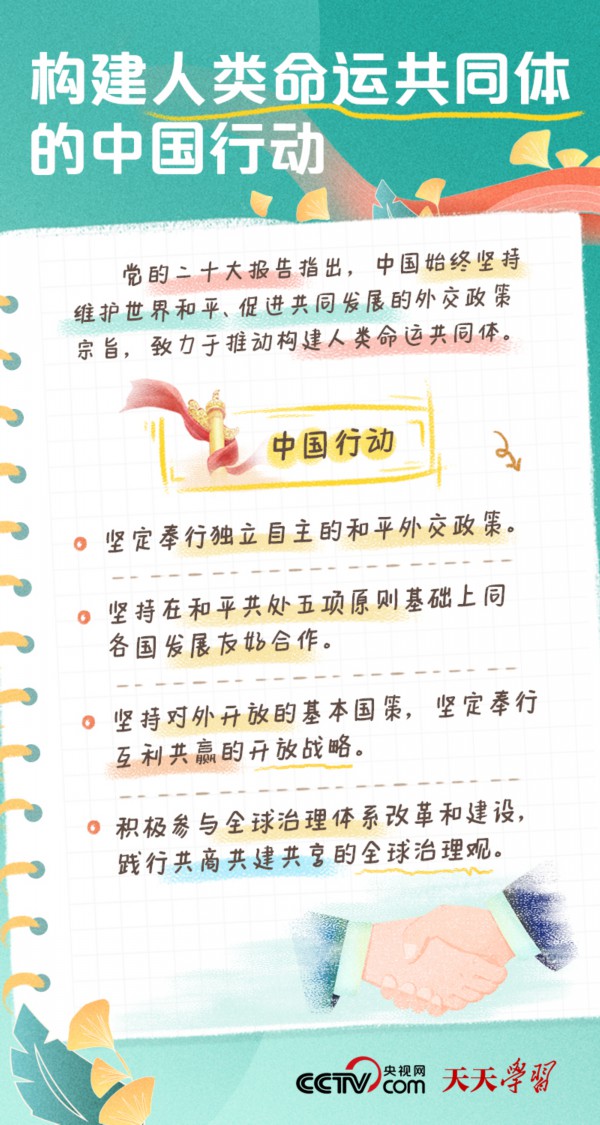 构建人类命运共同体
的中国行动
党的二十大报告指出，中国始终坚持
维护世界和平、促进共同发展的外交政策
宗旨，致力于推动构建人类命运共同体。
中国行动
坚定奉行独立自主的和平外交政策。
坚持在和平共处五项原则基础上同
各国发展友好合作。
坚持对外开放的基本国策，坚定奉行
互利共赢的开放战略。
积极参与全球治理体系改革和建设，
践行共商共建共享的全球治理观。
CCTV.com 央视网 天天学習